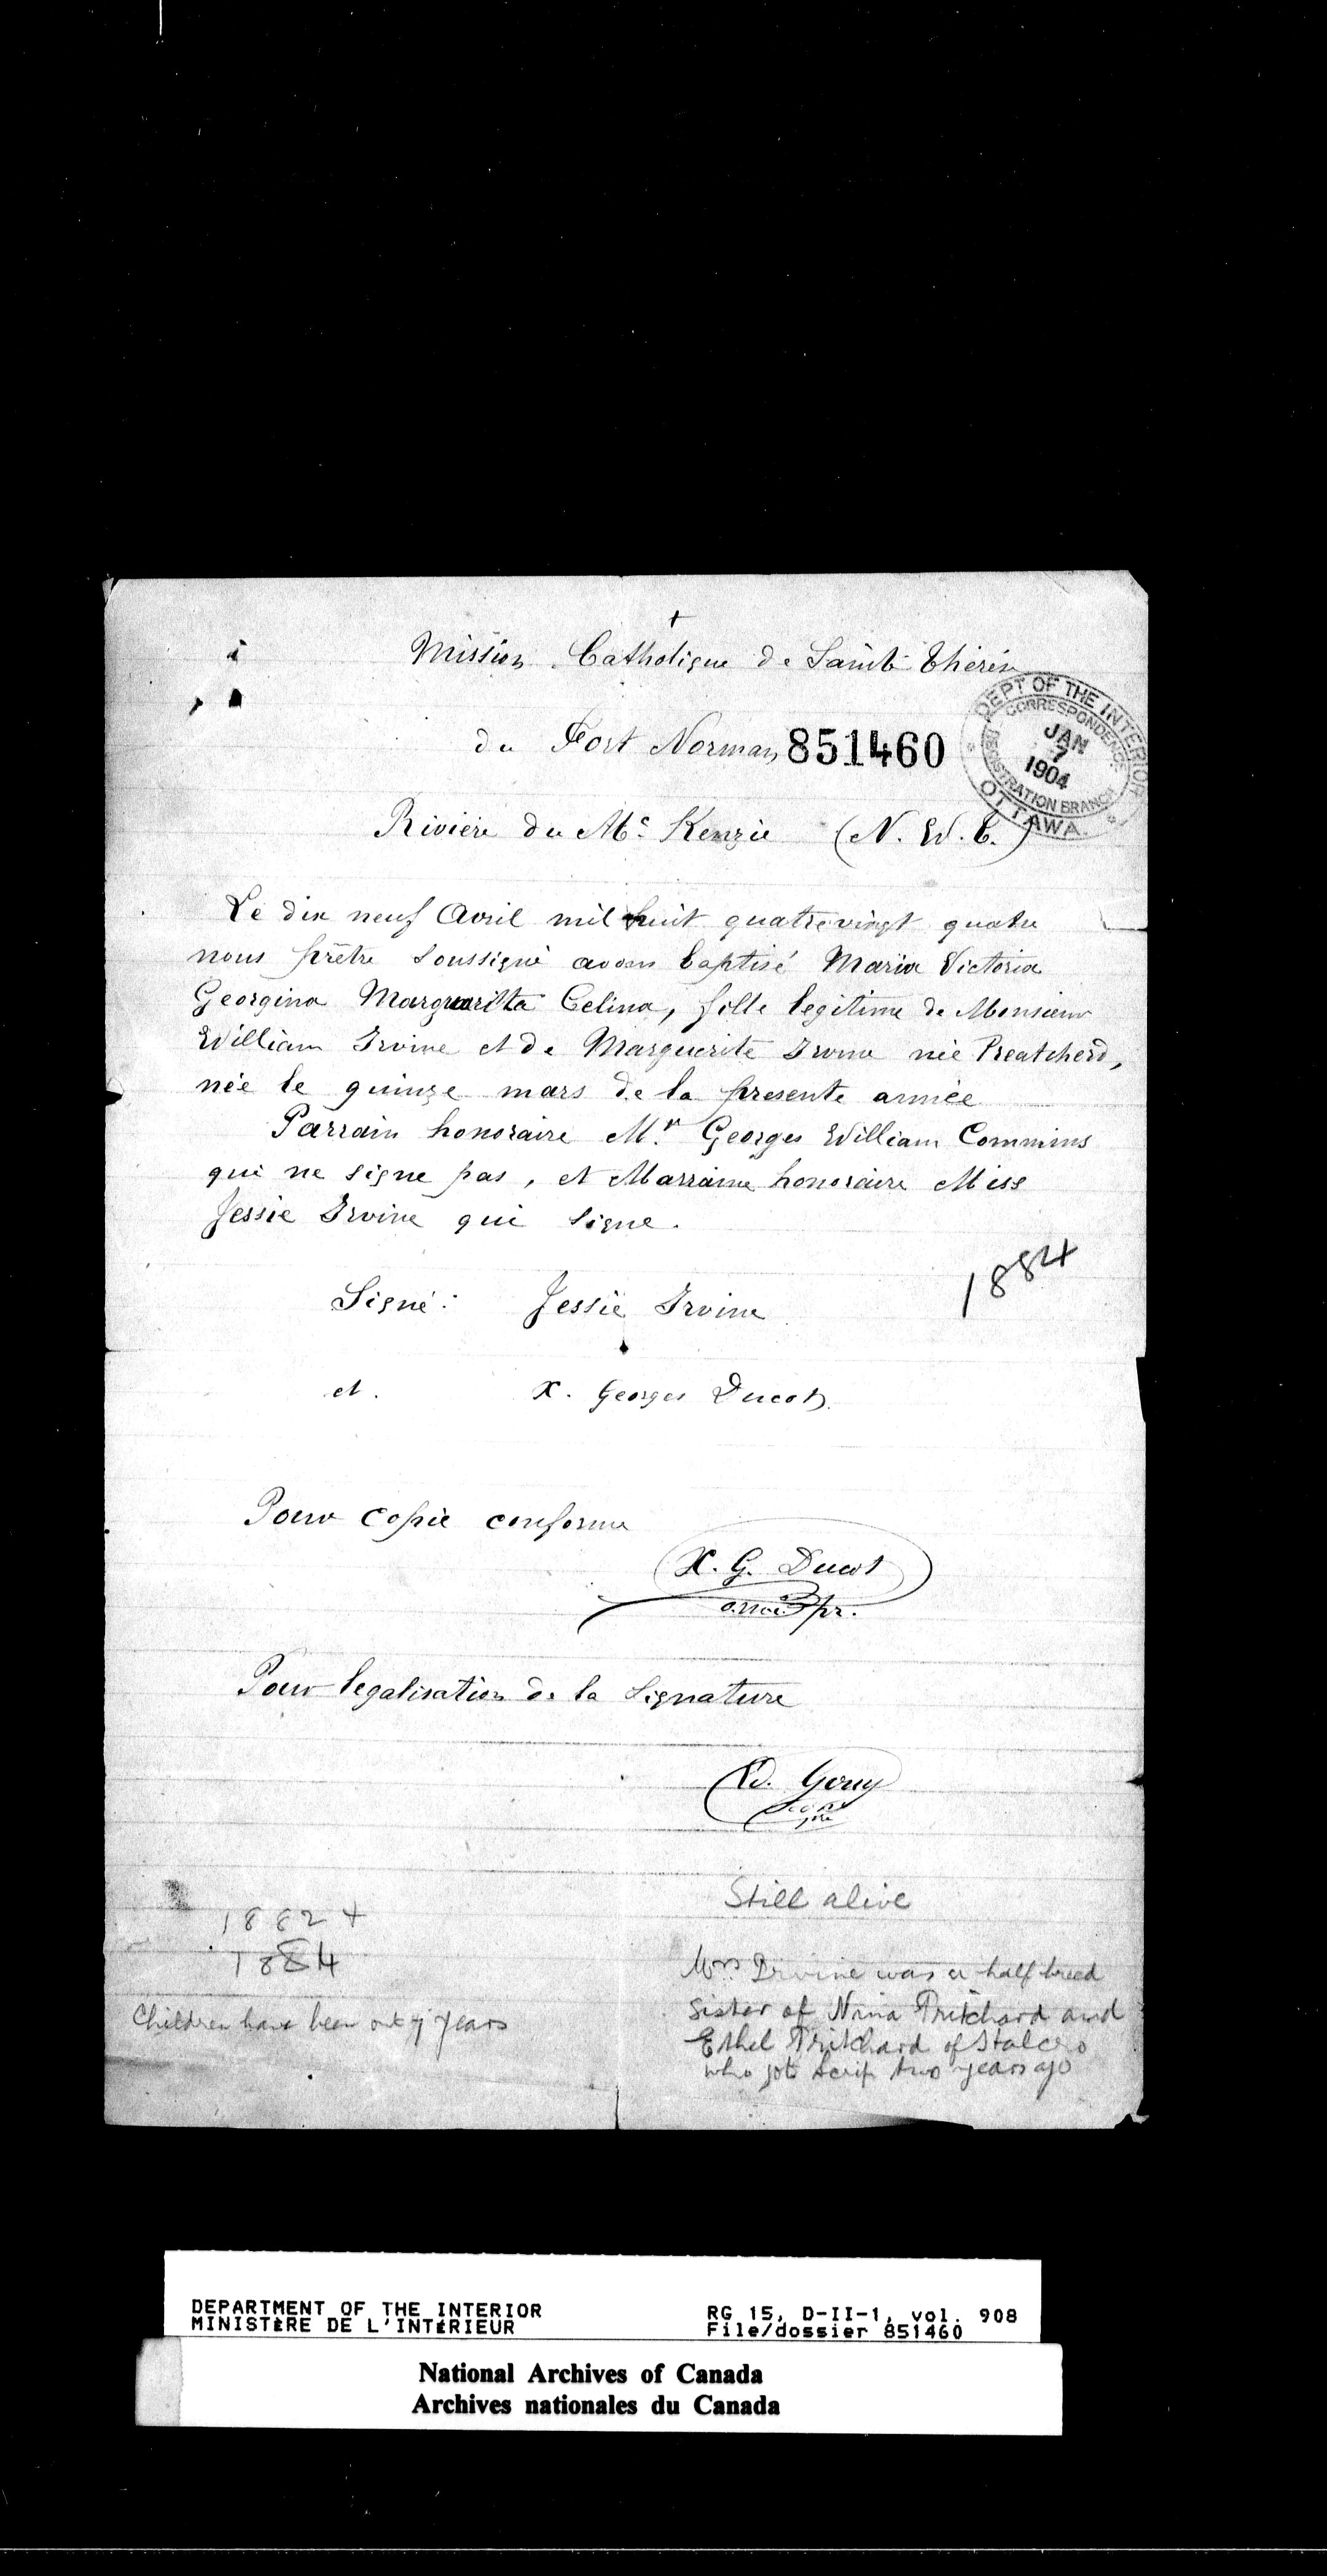 Mission Catholique de Sainte Thérèse
du Fort Norman 851460
DEPT OF THE INTERIOR
CORRESPONDENCE
JAN 7 1904
REGISTRATION BRANCH
OTTAWA
Rivière du Mc Kenzie (N. W. T.)
Le dix neuf Avril mil huit quatrevingt quatre
nous prêtre soussigné avons baptisé Maria Victoria
Georgina Marguarita Celina, fille legitime de Monsieur
William Irvine et de Marguerite Irvine née Preatcherd,
née le quinze mars de la presente année
Parrain honoraire Mr Georges William Commins
qui ne signe pas, et Marraine honoraire Miss
Jessie Irvine qui signe.
1884
Signé: Jessie Irvine
et. X. Georges Ducot
Pour copie conforme
X. G. Ducot
o.m.i. pr.
Pour legalisation de la signature
Still alive
1882 +
1884
Mrs Irvine was a half breed
Children have been out 7 years
sister of Nina Pritchard and
Ethel Pritchard of
who got scrip two years ago
DEPARTMENT OF THE INTERIOR
MINISTÈRE DE L'INTÉRIEUR
RG 15, D-II-1, vol. 908
File/dossier 851460
National Archives of Canada
Archives nationales du Canada